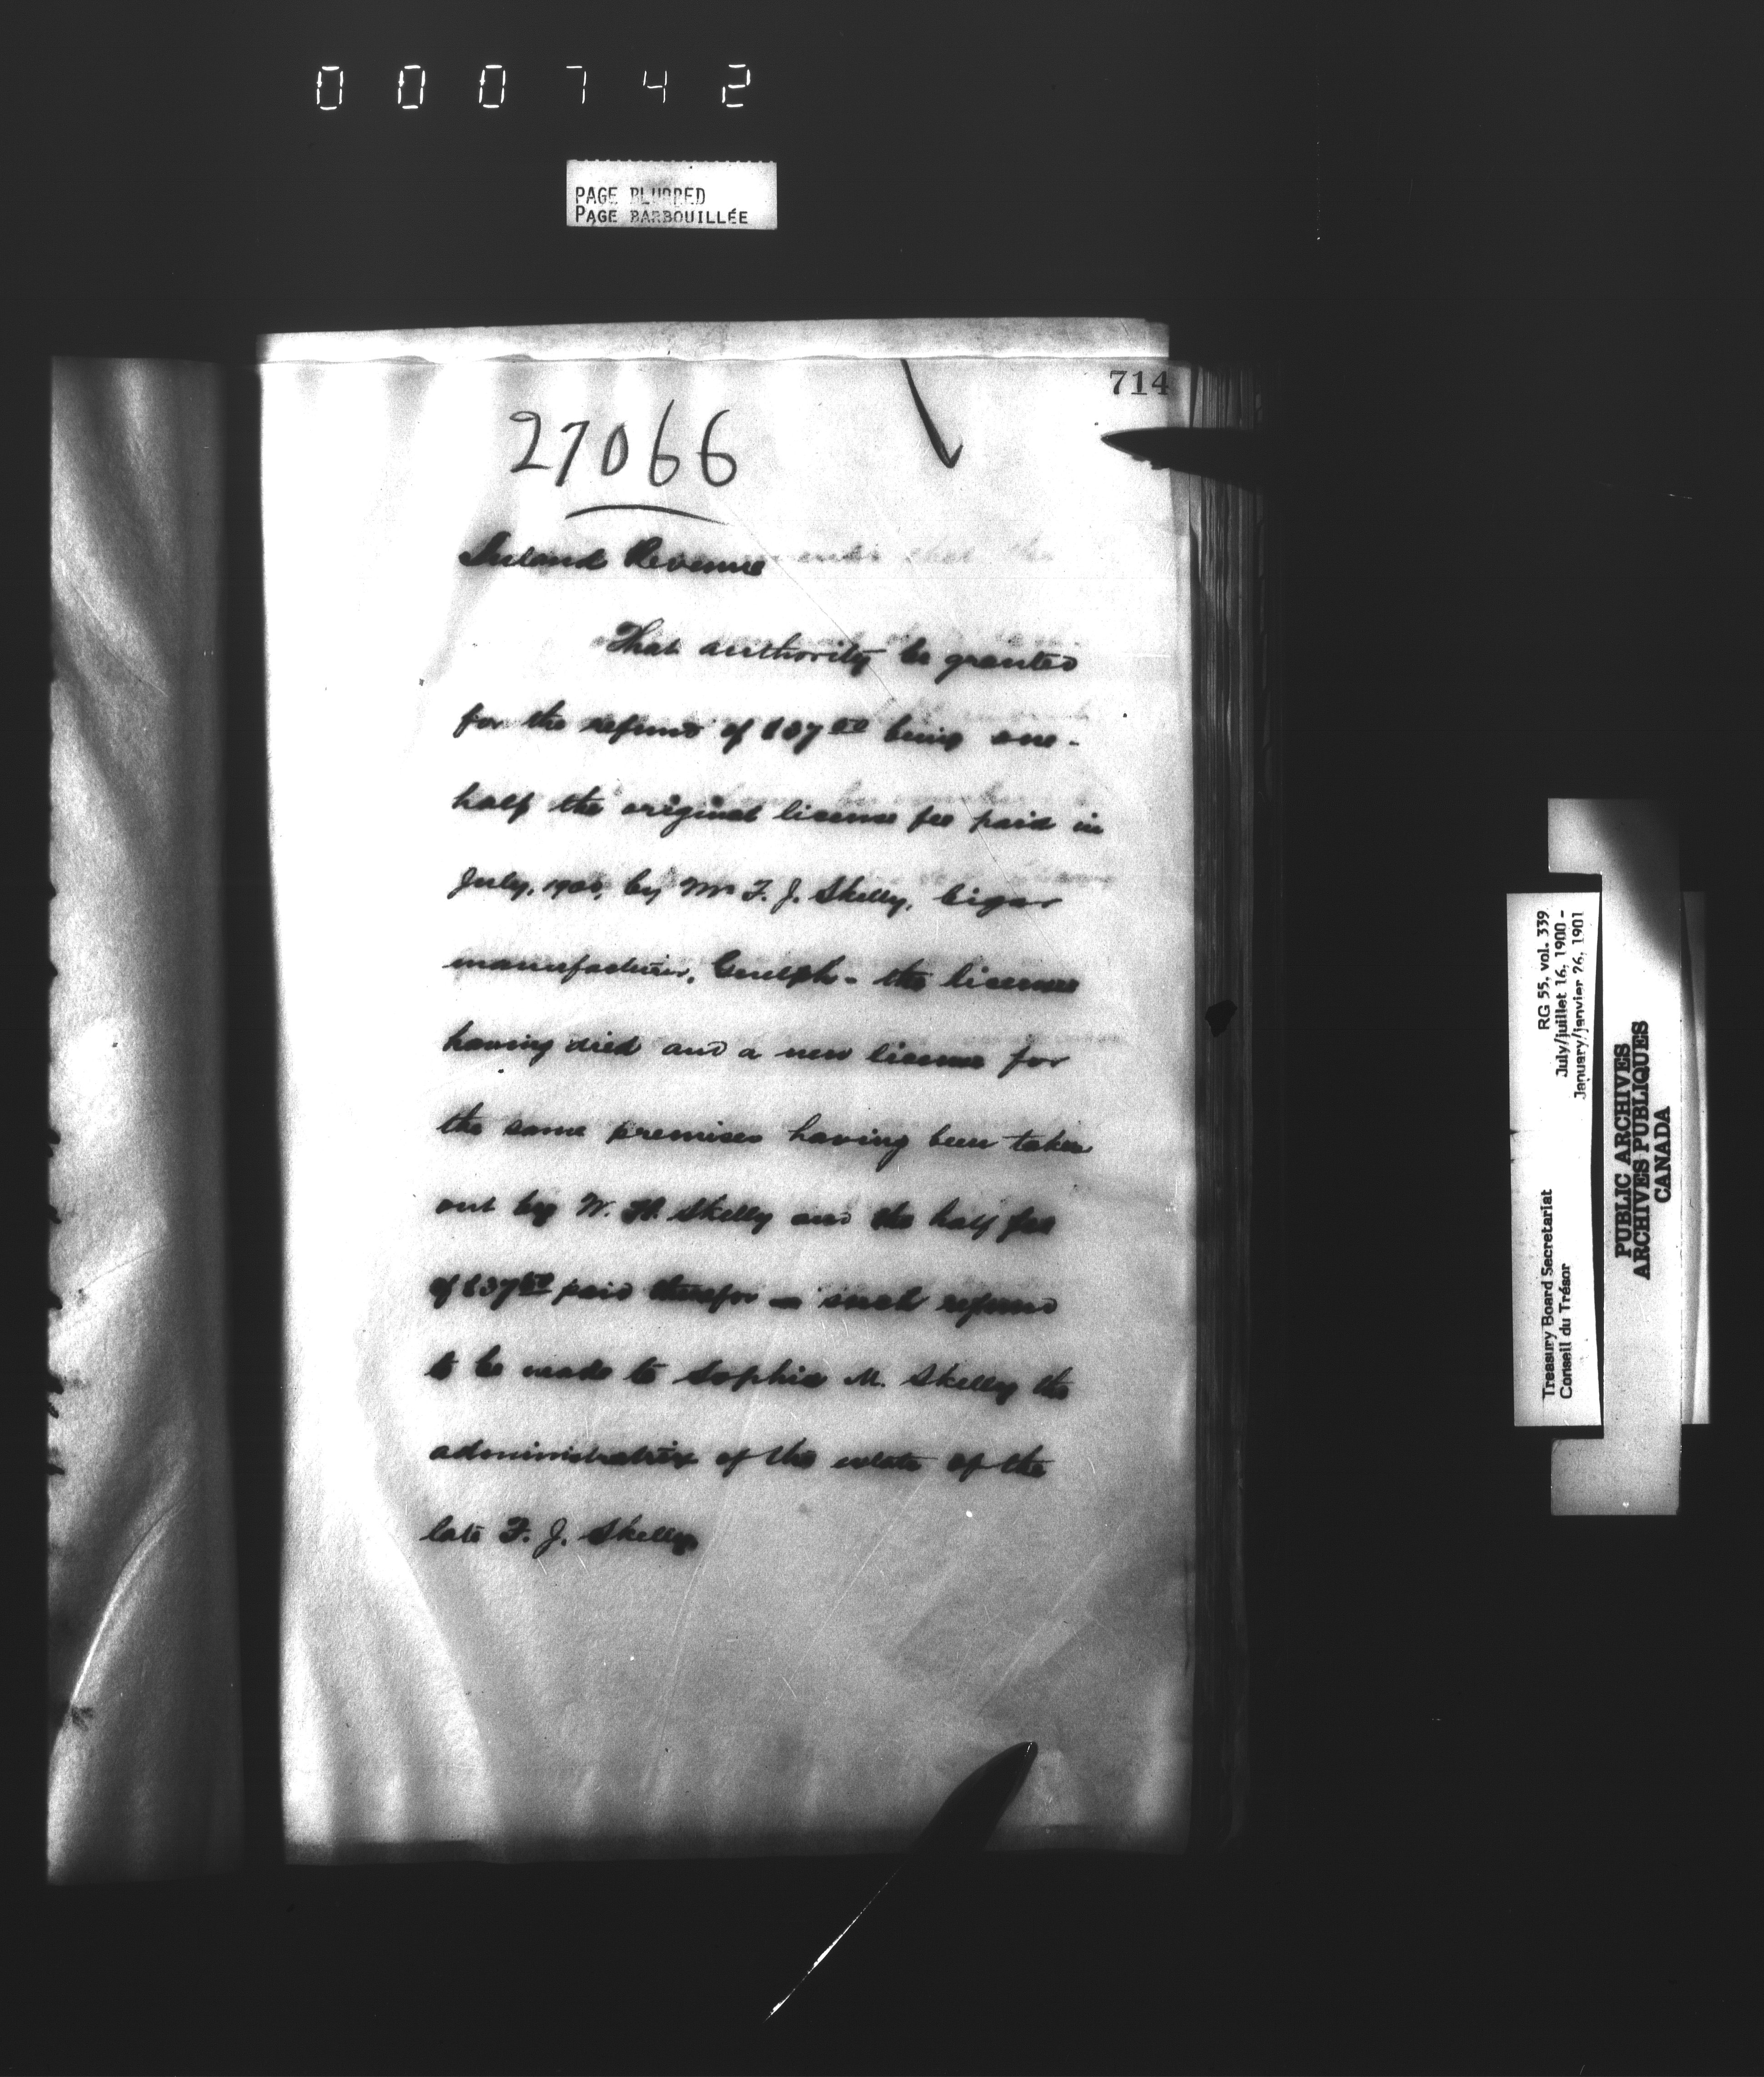 000742
PAGE BLURRED
PAGE BARBOUILLÉE
714
27066
Inland Revenue
That authority be granted
for the refund of $37 50 being one-
half the original license fee paid in
July, 1900, by Mr F. J. Skelly, Cigar
manufacturer, Guelph - the licensee
having died and a new license for
the same premises having been taken
out by W. H. Skelly and the half fee
of $37 50 paid therefor - such refund
to be made to Sophia M. Skelly the
administratrix of the estate of the
late F. J. Skelly
Treasury Board Secretariat RG 55, vol. 339
Conseil du Trésor July/juillet 16, 1900 -
January/janvier 26, 1901
PUBLIC ARCHIVES
ARCHIVES PUBLIQUES
CANADA